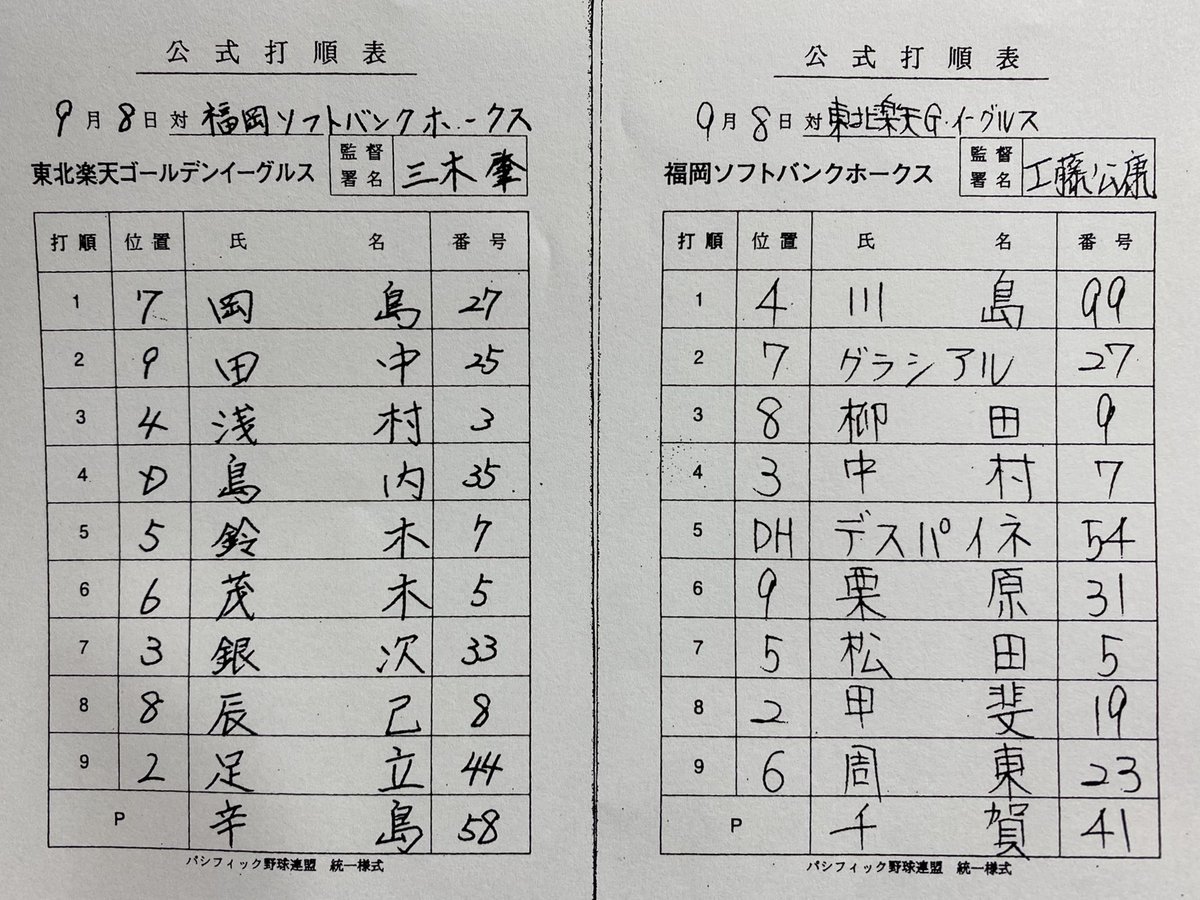 公式打順表
9月8日対 福岡ソフトバンクホークス
東北楽天ゴールデンイーグルス 監督署名 三木肇
打順 位置 氏名 番号
1 7 岡島 27
2 9 田中 25
3 4 浅村 3
4 D 島内 35
5 5 鈴木 7
6 6 茂木 5
7 3 銀次 33
8 8 辰己 8
9 2 足立 44
P 辛島 58
パシフィック野球連盟 統一様式
公式打順表
9月8日対 東北楽天G.イーグルス
福岡ソフトバンクホークス 監督署名 工藤公康
打順 位置 氏名 番号
1 4 川島 99
2 7 グラシアル 27
3 8 柳田 9
4 3 中村 7
5 DH デスパイネ 54
6 9 栗原 31
7 5 松田 5
8 2 甲斐 19
9 6 周東 23
P 千賀 41
パシフィック野球連盟 統一様式